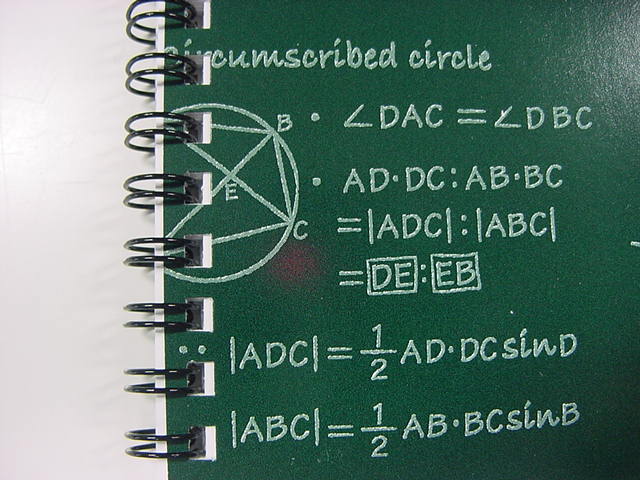 Circumscribed circle
B
• ∠DAC = ∠DBC
E
• AD·DC:AB·BC
C
=|ADC|:|ABC|
=DE:EB
|ADC|=1/2 AD·DCsinD
|ABC|=1/2 AB·BCsinB